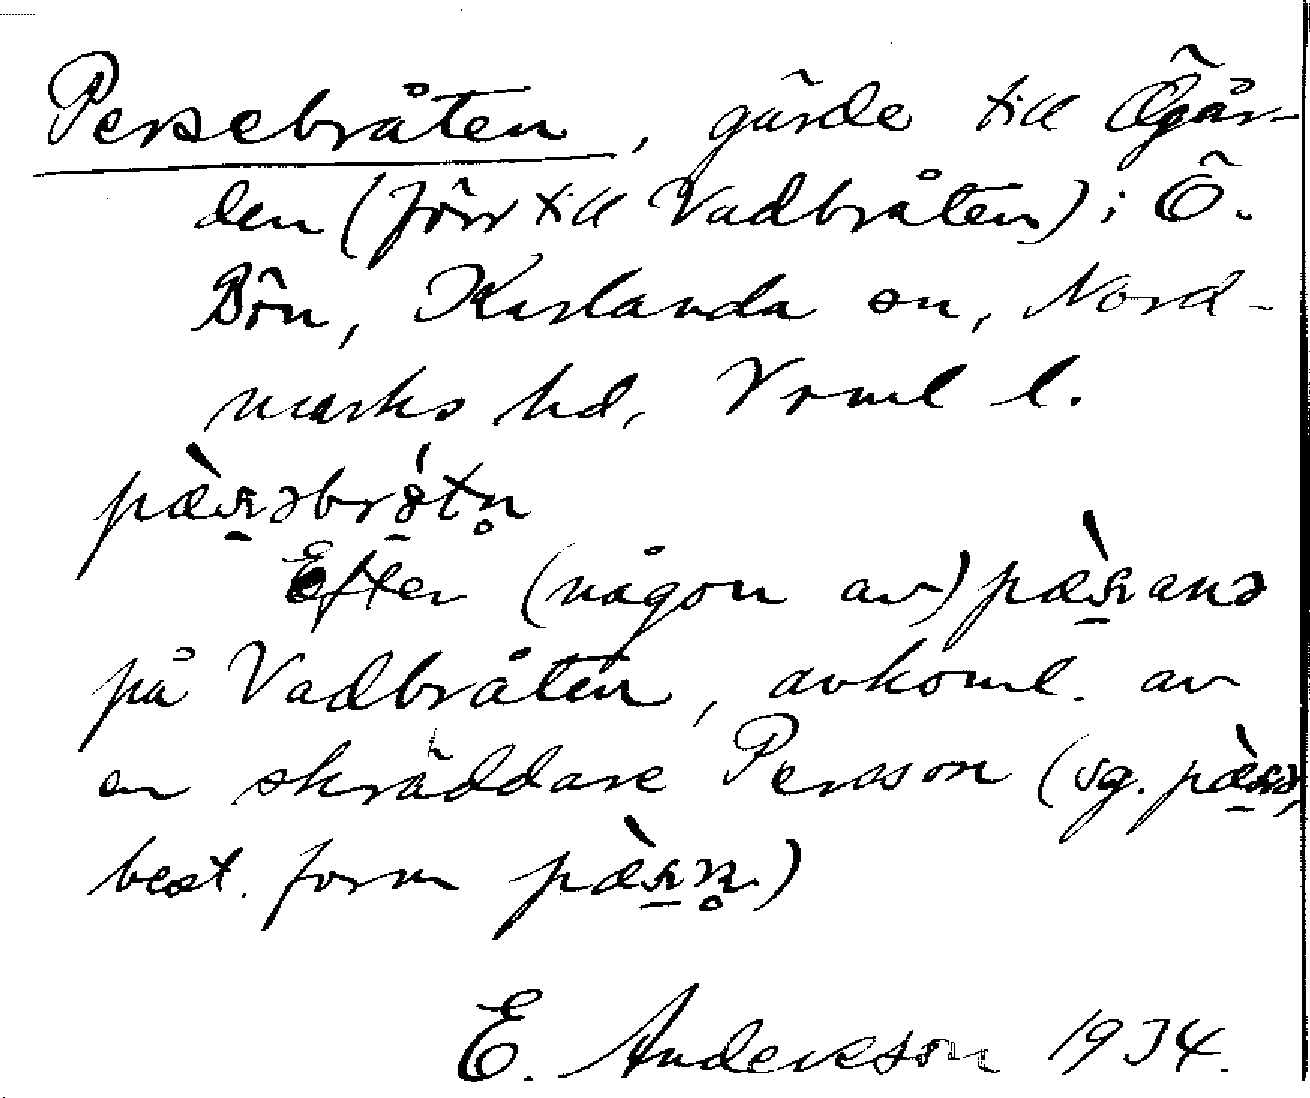 Persebråten, gärde till Ögår-
den (förr till Vadbråten) i Ö.
Bön, Karlanda sn, Nord-
marks hd, Vrml l.
Efter (någon av)
på Vadbråten, avkoml. av
en skräddare Persson (sg.
best. form
E. Andersson 1934.